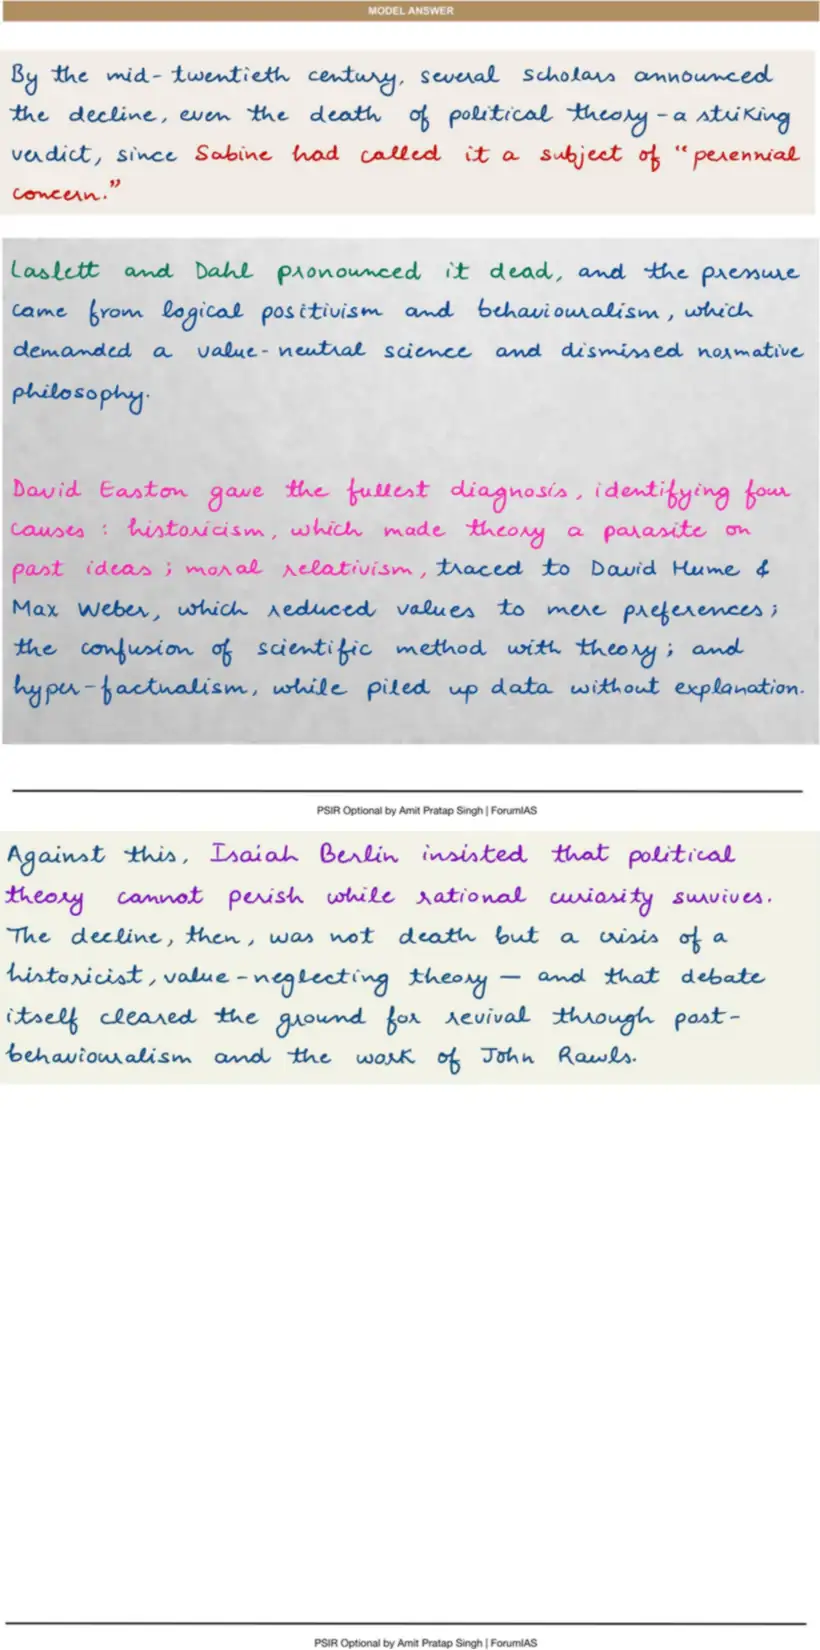 MODEL ANSWER
By the mid-twentieth century, several scholars announced
the decline, even the death of political theory - a striking
verdict, since Sabine had called it a subject of "perennial
concern."
Laslett and Dahl pronounced it dead, and the pressure
came from logical positivism and behaviouralism, which
demanded a value-neutral science and dismissed normative
philosophy.
David Easton gave the fullest diagnosis, identifying four
causes : historicism, which made theory a parasite on
past ideas ; moral relativism, traced to David Hume &
Max Weber, which reduced values to mere preferences ;
the confusion of scientific method with theory ; and
hyper-factualism, while piled up data without explanation.
PSIR Optional by Amit Pratap Singh | ForumIAS
Against this, Isaiah Berlin insisted that political
theory cannot perish while rational curiosity survives.
The decline, then, was not death but a crisis of a
historicist, value-neglecting theory — and that debate
itself cleared the ground for revival through post-
behaviouralism and the work of John Rawls.
PSIR Optional by Amit Pratap Singh | ForumIAS